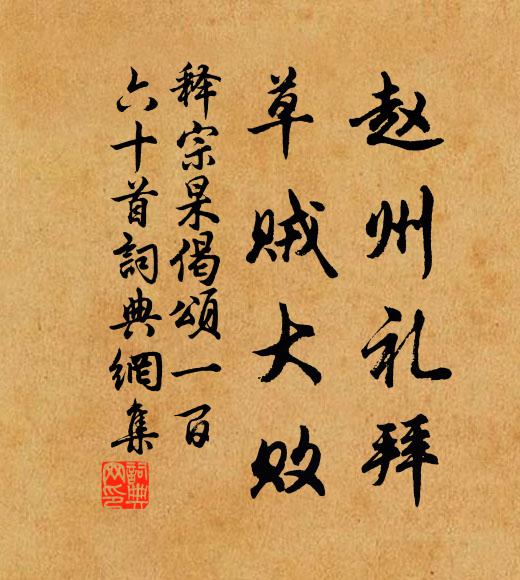 赵州礼拜
草贼大败
释宗杲偈頌一百
六十首詞典網集
詞典
网印